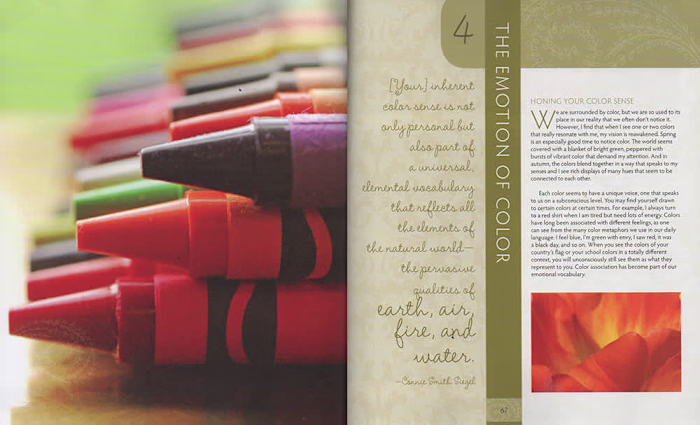 4
THE EMOTION OF COLOR
[Your] inherent
color sense is not
only personal but
also part of
a universal,
elemental vocabulary
that reflects all
the elements of
the natural world—
the pervasive
qualities of
earth, air,
fire, and
water.
—Connie Smith Siegel
HONING YOUR COLOR SENSE
We are surrounded by color, but we are so used to its
place in our reality that we often don't notice it.
However, I find that when I see one or two colors
that really resonate with me, my vision is reawakened. Spring
is an especially good time to notice color. The world seems
covered with a blanket of bright green, peppered with
bursts of vibrant color that demand my attention. And in
autumn, the colors blend together in a way that speaks to my
senses and I see rich displays of many hues that seem to be
connected to each other.
Each color seems to have a unique voice, one that speaks
to us on a subconscious level. You may find yourself drawn
to certain colors at certain times. For example, I always turn
to a red shirt when I am tired but need lots of energy. Colors
have long been associated with different feelings, as one
can see from the many color metaphors we use in our daily
language: I feel blue, I'm green with envy, I saw red, it was
a black day, and so on. When you see the colors of your
country's flag or your school colors in a totally different
context, you will unconsciously still see them as what they
represent to you. Color association has become part of our
emotional vocabulary.
67